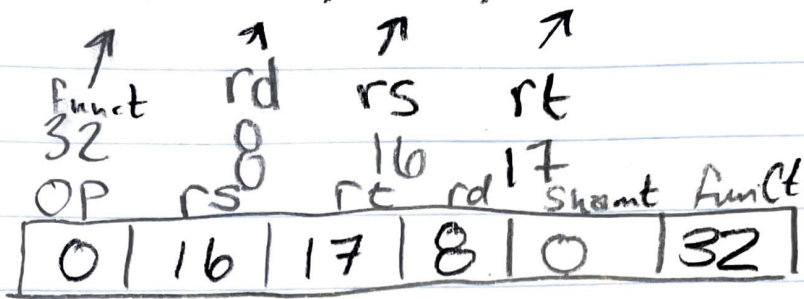 funct rd rs rt
32 8 16 17
OP rs rt rd shamt funct
0 16 17 8 0 32